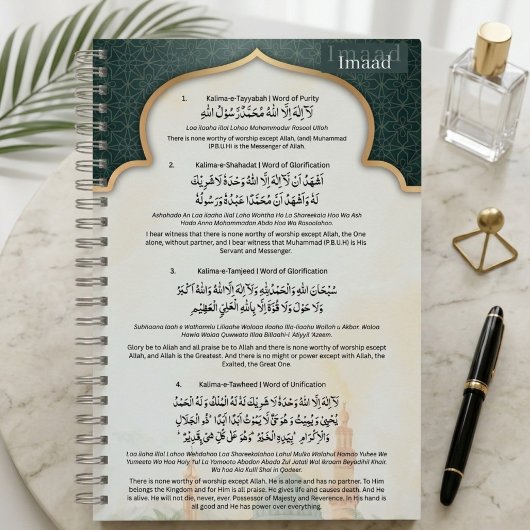 Imaad
Imaad
1. Kalima-e-Tayyabah | Word of Purity
لَآ اِلٰهَ اِلَّا اللهُ مُحَمَّدٌ رَّسُوْلُ اللهِ
Laa ilaaha illal Lahoo Mohammadur Rasool Ullah
There is none worthy of worship except Allah, (and) Muhammad
(P.B.U.H) is the Messenger of Allah.
2. Kalima-e-Shahadat | Word of Glorification
اَشْهَدُ اَنْ لَّآ اِلٰهَ اِلَّا اللهُ وَحْدَهٗ لَا شَرِيْكَ
لَهٗ وَاَشْهَدُ اَنَّ مُحَمَّدًا عَبْدُهٗ وَرَسُوْلُهٗ
Ashohado An Laa ilaaha illal Laho Wahtha Ho La Shareekala Hoo Wa Ash
Hado Anna Mohammadan Abdo Hoo Wa Rasoolahoo.
I bear witness that there is none worthy of worship except Allah, the One
alone, without partner, and I bear witness that Muhammad (P.B.U.H) is His
Servant and Messenger.
3. Kalima-e-Tamjeed | Word of Glorification
سُبْحَانَ اللهِ وَالْحَمْدُ لِلّٰهِ وَلَآ اِلٰهَ اِلَّا اللهُ وَاللهُ اَكْبَرُ
وَلَا حَوْلَ وَلَا قُوَّةَ اِلَّا بِاللهِ الْعَلِيِّ الْعَظِيْمِ
Subhaana laah e Wathamiu Liliaahe Wolaaa ilaaha illa-liaahu Wollah u Akbar. Walaa
Hawla Walaa Quwwata illaa Billaahi-l 'Atiyyil 'Azeem.
Glory be to Allah and all praise be to Allah and there is none worthy of worship except
Allah, and Allah is the Greatest. And there is no might or power except with Allah, the
Exalted, the Great One.
4. Kalima-e-Tawheed | Word of Unification
لَآ اِلٰهَ اِلَّا اللهُ وَحْدَهٗ لَا شَرِيْكَ لَهٗ لَهُ الْمُلْكُ وَ لَهُ الْحَمْدُ
يُحْيٖ وَ يُمِيْتُ وَ هُوَ حَيٌّ لَّا يَمُوْتُ اَبَدًا اَبَدًا ؕ ذُو الْجَلَالِ
وَالْاِكْرَامِ ؕ بِيَدِهِ الْخَيْرُ ؕ وَهُوَ عَلٰى كُلِّ شَيْءٍ قَدِيْرٌ ؕ
Laa ilaha illal Lahoo Wahdahoo Laa Shareekalahoo Lahul Mulko Walahul Hamdo Yuhee We
Yumeeto Wa Hoa Haiy Yul La Yamooto Abadan Abada Zul Jalati Wal Ikraam Beyadihil Khair.
Wa hoa Ala Kulli Shai in Qadeer.
There is none worthy of worship except Allah. He is alone and has no partner. To Him
belongs the Kingdom and for Him is all praise. He gives life and causes death. And He
is alive. He will not die, never, ever. Possessor of Majesty and Reverence. In His hand is
all good and He has power over everything.